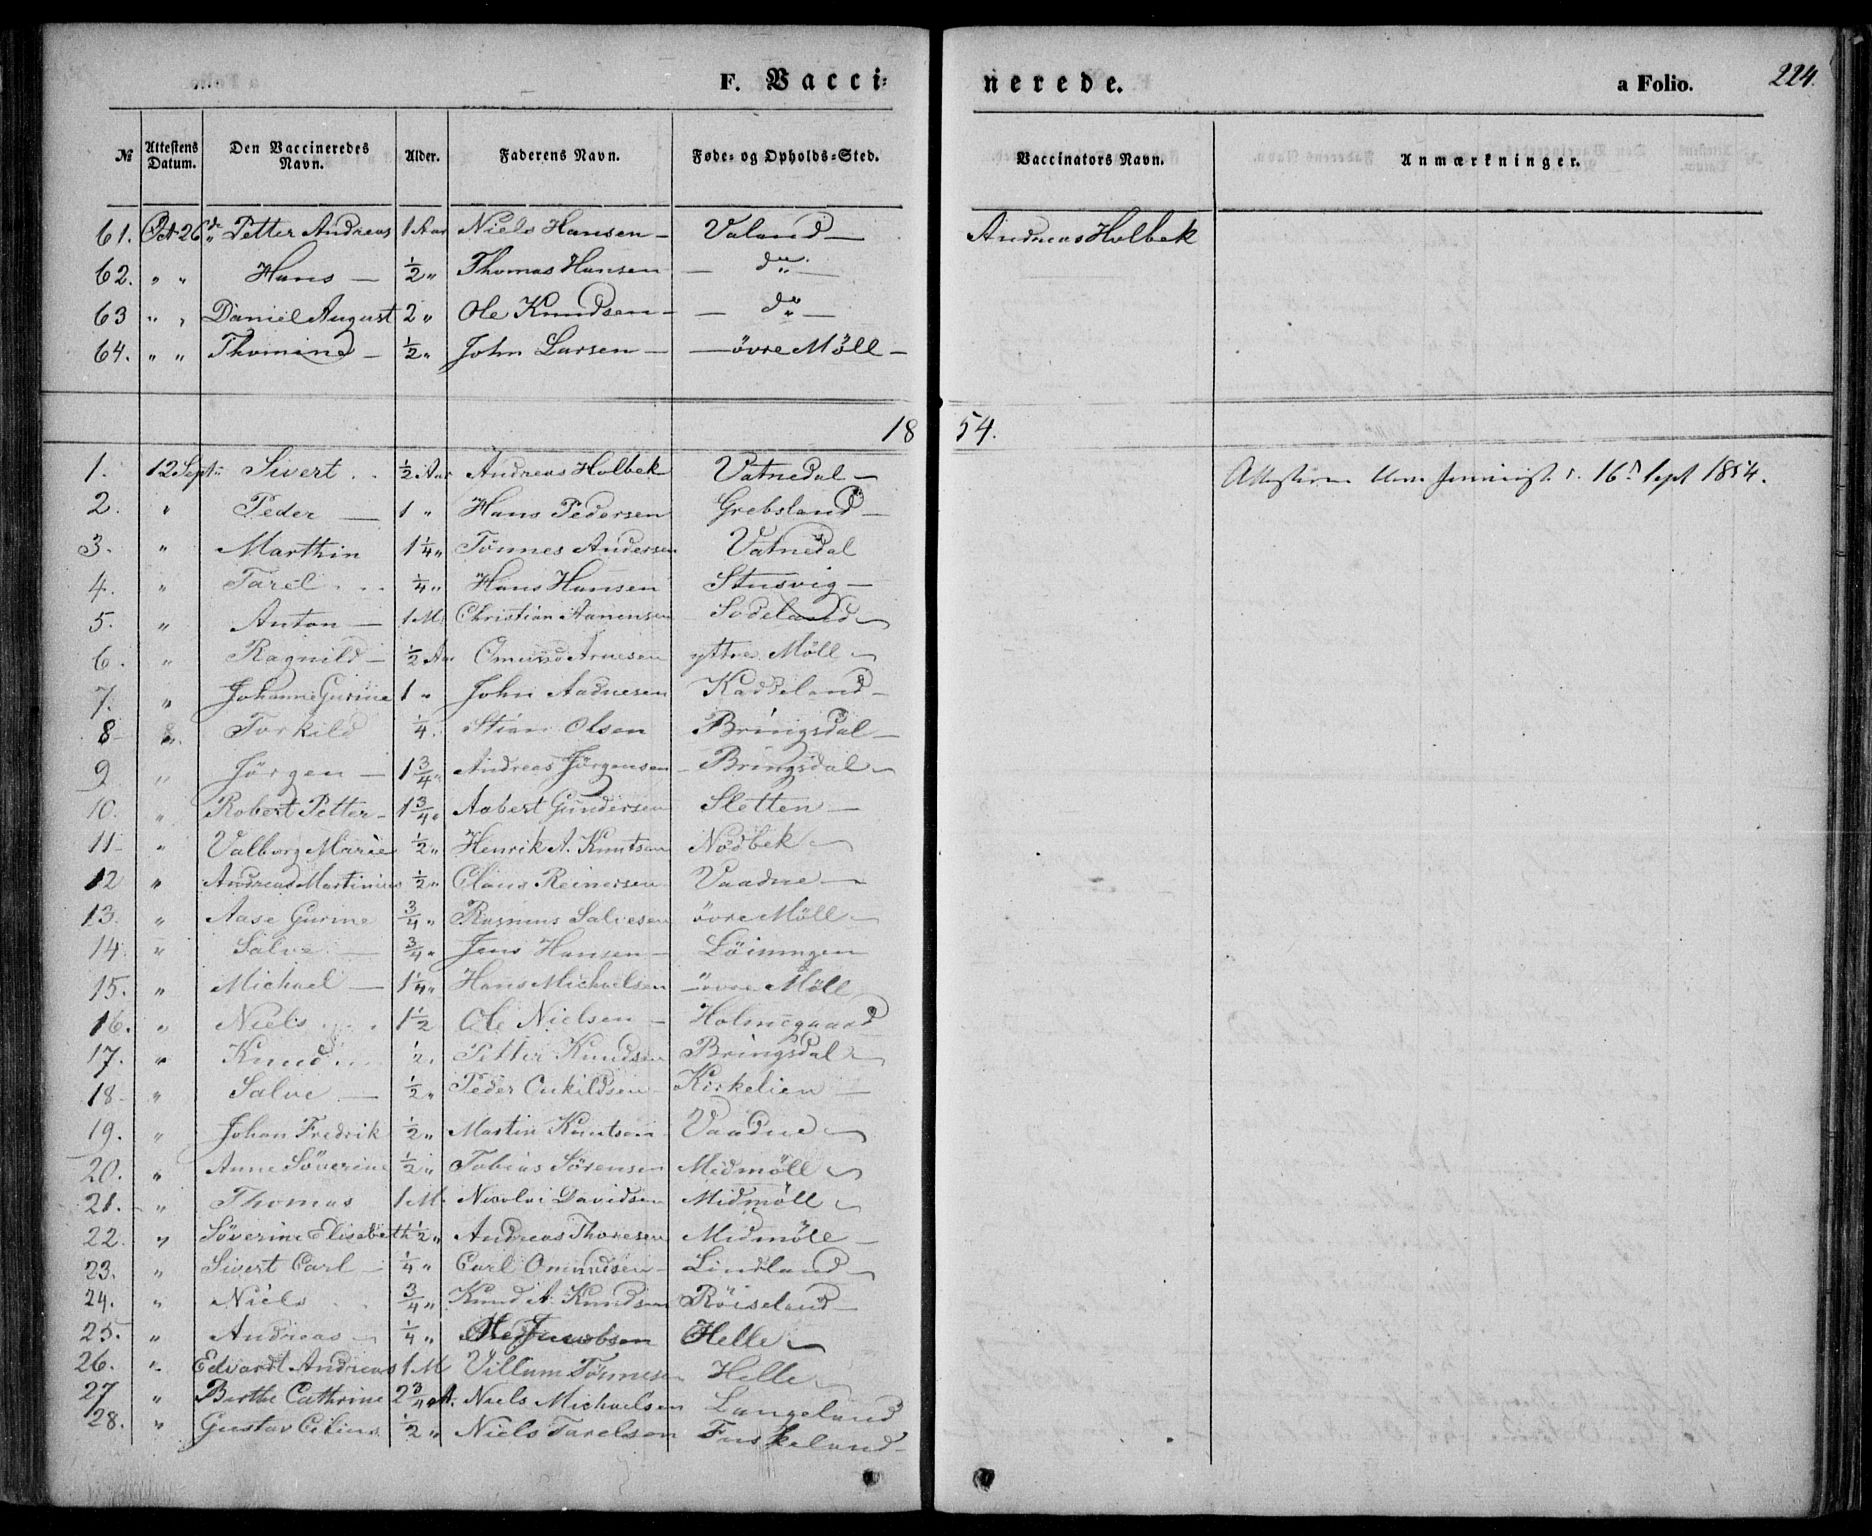 F. Vacci=
nerede.
a Folio.
224.
№
Attestens Datum.
Den Vaccineredes Navn.
Alder.
Faderens Navn.
Føde- og Opholds-Sted.
Vaccinators Navn.
Anmærkninger.
61. Oct 26de Petter Andreas 1 Aar Niels Hansen – Valand – Andreas Holbek
62. " " Hans – ½ " Thomas Hansen – do –
63 " " Daniel August 2 " Ole Knudsen – – do –
64. " " Thomine – ½ " John Larsen – – övre Möll –
18 54.
1. 12 Sept: Sivert . . ½ Aar Andreas Holbek Vatnedal – 16d Sept 1854.
2. " Peder – 1 " Hans Pedersen Grebsland –
3. " Marthin 1¼ " Tönnes Andersen Vatnedal
4. " Tarel . . . ¼ " Hans Hansen Stusvig –
5. " Anton – 1 M. Christian Aanensen Sodeland –
6. " Ragnild – ½ Aar Omund Arnesen yttre Möll –
7. " Johanne Gurine 1 " John Aadnesen Kaddeland –
8 – " Torkild ¼. Stian Olsen Bringsdal –
9 " Jörgen – 1¾ " Andreas Jörgensen – Bringsdal –
10. " Robert Petter – 1¾ " Aabert Gundersen Sletten –
11 – " Valborg Marie ½ " Henrik A. Knutsen Nödbek –
12 " Andreas Martinius ½ " Claus Reinersen Vaadne –
13. " Aase Gurine ¾ " Rasmus Salvesen övre Möll –
14. " Salve – ¾ " Jens Hansen – Löiningen
15. " Michael – 1¼ " Hans Michaelsen – övre Möll
16. " Niels . . . 1½ Ole Nielsen – Holmegaard
17. " Knud . . . ½. Petter Knudsen Bringsdal –
18 – " Salve – ½ " Peder Enkildsen – Kirkelien –
19. " Johan Fredrik ½ " Martin Knutsen – Vaadne –
20. " Anne Söverine ½ " Tobias Sörensen Midmöll –
21. – " Thomas 1 M. Nicolai Davidsen Midmöll –
22. " Söverine Elisabeth ½ " Andreas Thoresen Midmöll –
23. " Sivert Carl – ¼ " Carl Omundsen – Lindland –
24. " Niels . . ¾ " Knud A. Knudsen Röiseland –
25. " Andreas – ¼ " Ole Jacobsen Helle –
26. " Edvardt Andreas 1 M Villum Tönnesen Helle –
27 " Berthe Cathrine 2¾ A. Niels Michaelsen Langeland
28. " Gustav Cilius ½ " Niels Tarelsen Fuskeland –